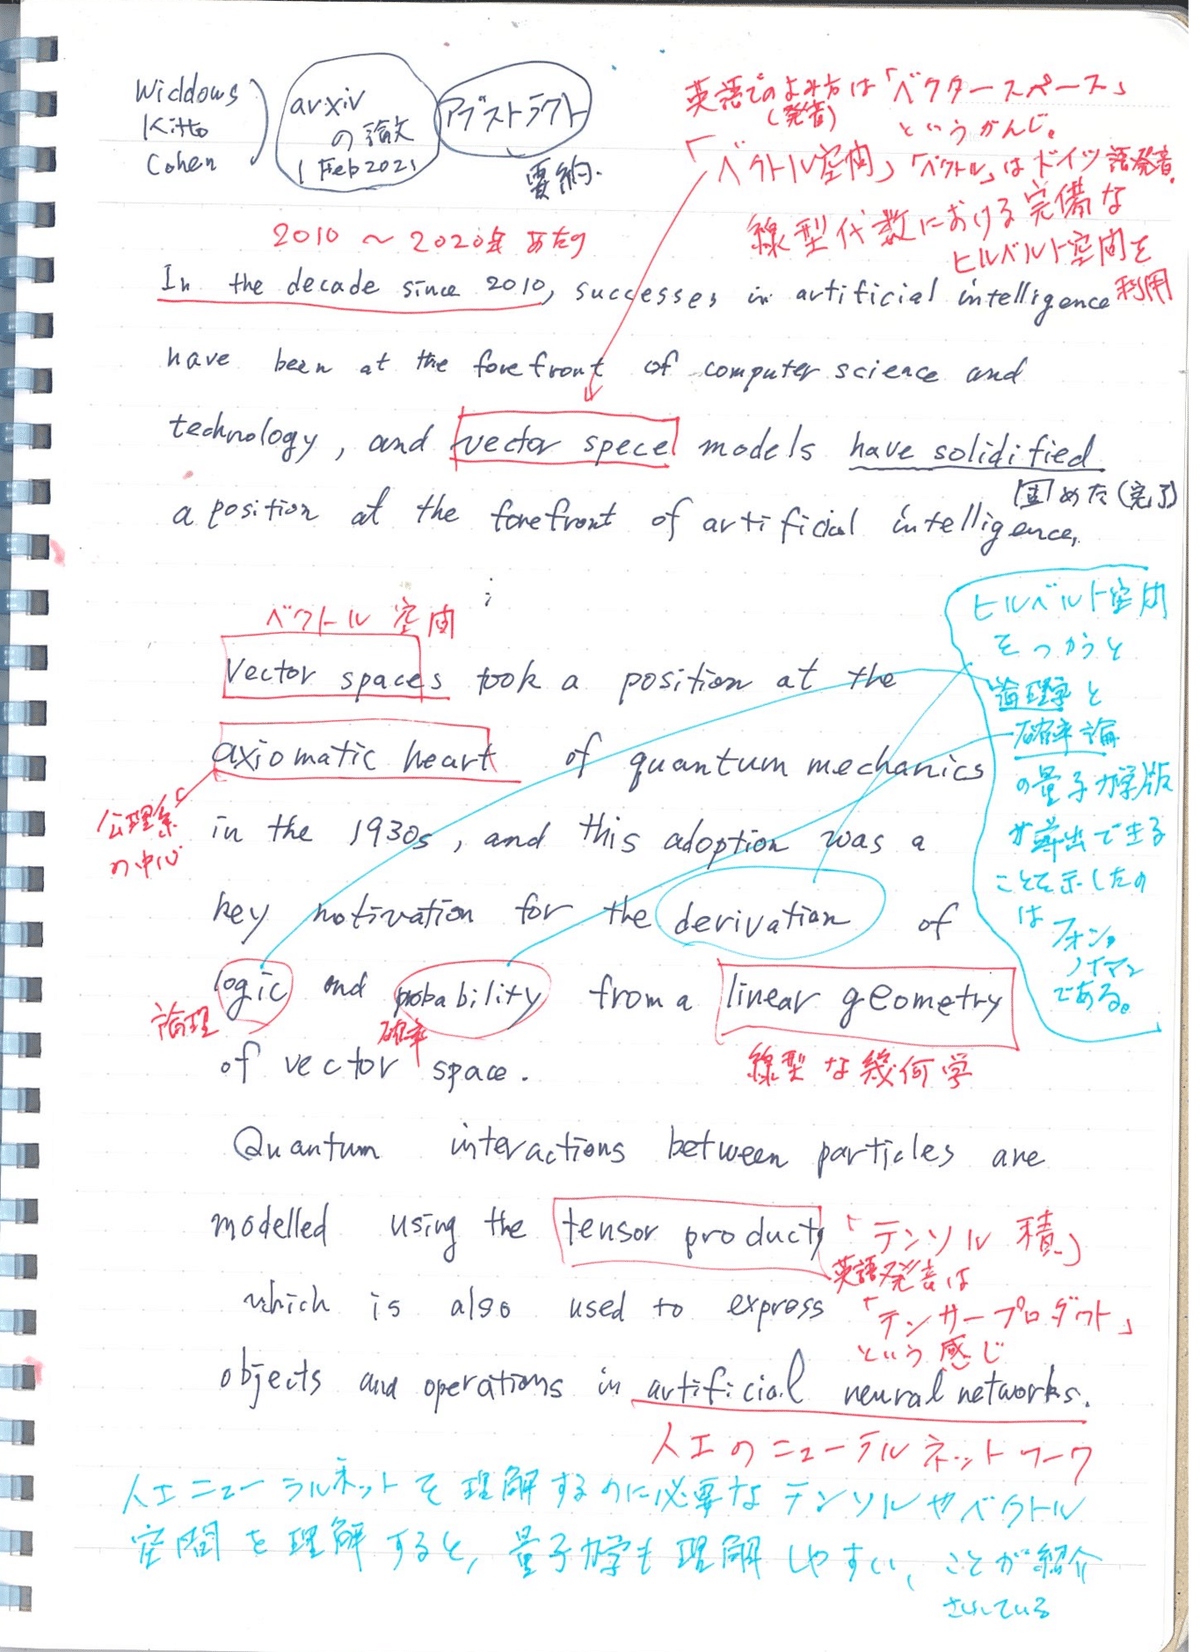 Widdows
Kitto
Cohen
arxiv
の論文
1 Feb 2021
アブストラクト
要約.
英語でのよみ方は「ベクタースペース」
(発音)
というかんじ。
「ベクトル空間」「ベクトル」はドイツ語発音.
線型代数における完備な
ヒルベルト空間を
利用
2010 〜 2020年 あたり
In the decade since 2010, successes in artificial intelligence
have been at the forefront of computer science and
technology, and vector spece models have solidified
固めた(完了)
a position at the forefront of artificial intelligence.
ベクトル 空間
Vector spaces took a position at the
axiomatic heart of quantum mechanics
公理系
の中心
in the 1930s, and this adoption was a
key motivation for the derivation of
logic and probability from a linear geometry
論理
確率
線型な幾何学
of vector space.
ヒルベルト空間
をつかうと
論理学と
確率論
の量子力学版
が導出できる
ことを示したの
は
フォン・
ノイマン
である。
Quantum interactions between particles are
modelled using the tensor product,
「テンソル積」
英語発音は
「テンサープロダクト」
という感じ
which is also used to express
objects and operations in artificial neural networks.
人工のニューラルネットワーク
人工ニューラルネットを理解するのに必要なテンソルやベクトル
空間を理解すると, 量子力学も理解しやすい, ことが紹介
されている